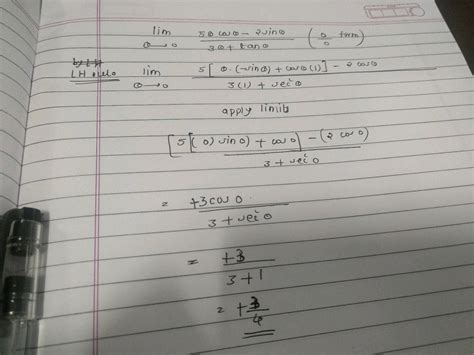 lim 5θ cosθ - 2sinθ ( 0/0 form )
θ→0 3θ + tanθ
LH rule lim 5[ θ·(-sinθ) + cosθ(1) ] - 2cosθ
θ→0 3(1) + sec²θ
apply limits
[5[(0) sin0) + cos0] - (2 cos0)
3 + sec²0
= +3cos0
3 + sec²0
= +3
3+1
= +3
4